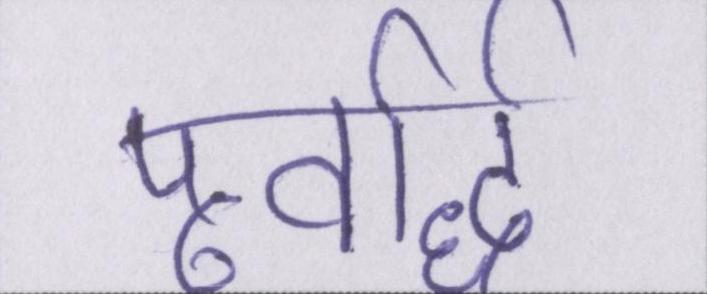 पूर्वार्द्ध